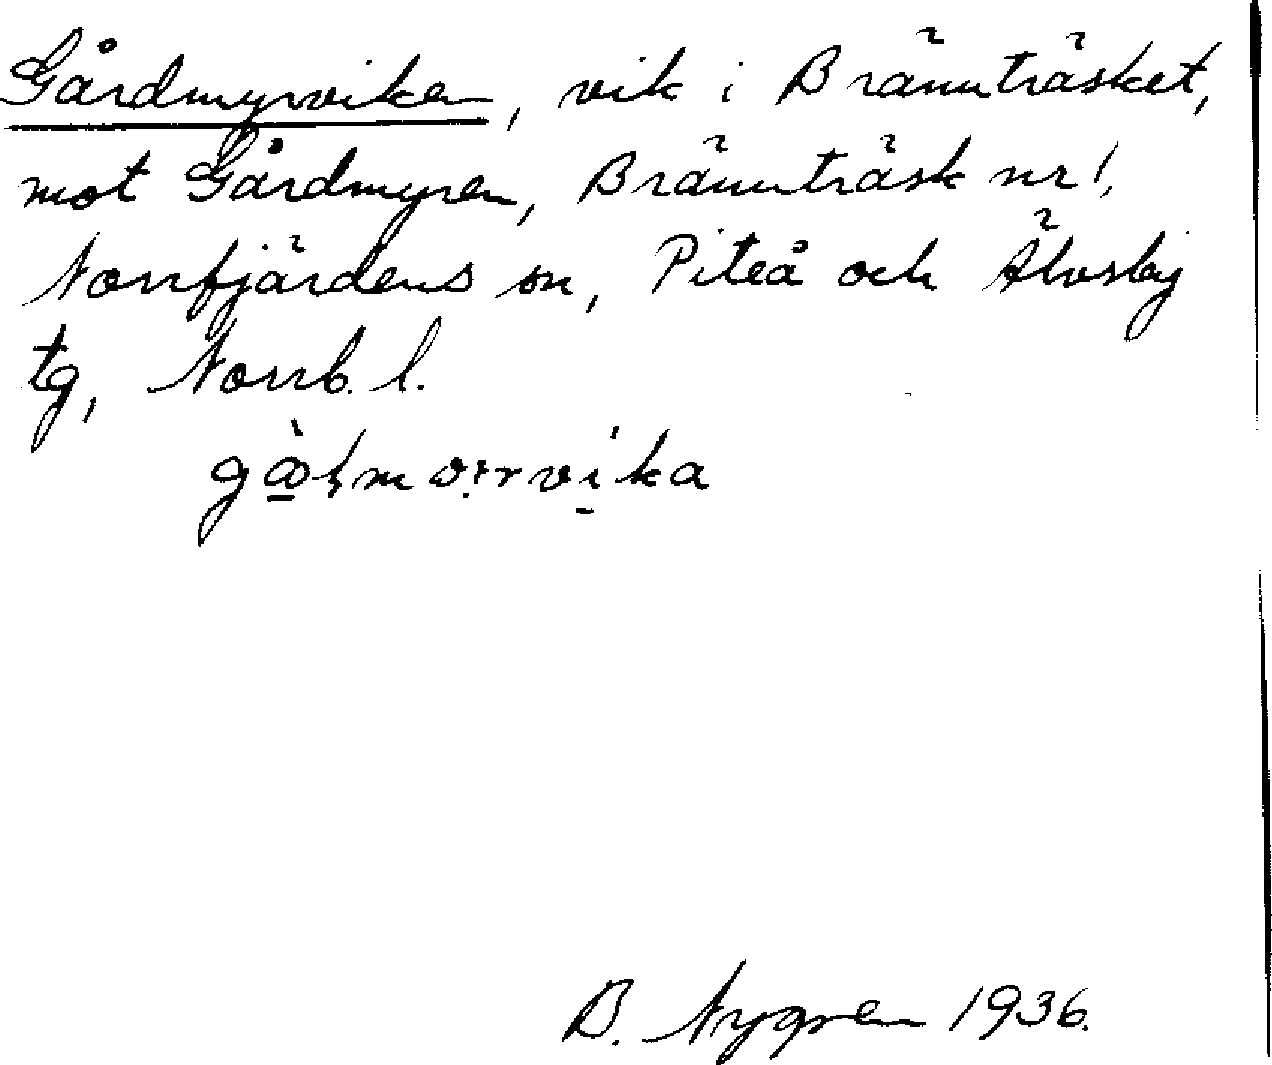 Gårdmyrviken, vik i Bränträsket,
mot Gårdmyren, Bränträsk nr 1,
Norrfjärdens sn, Piteå och Älvsby
tg, Norrb. l.
B. Nygren 1936.